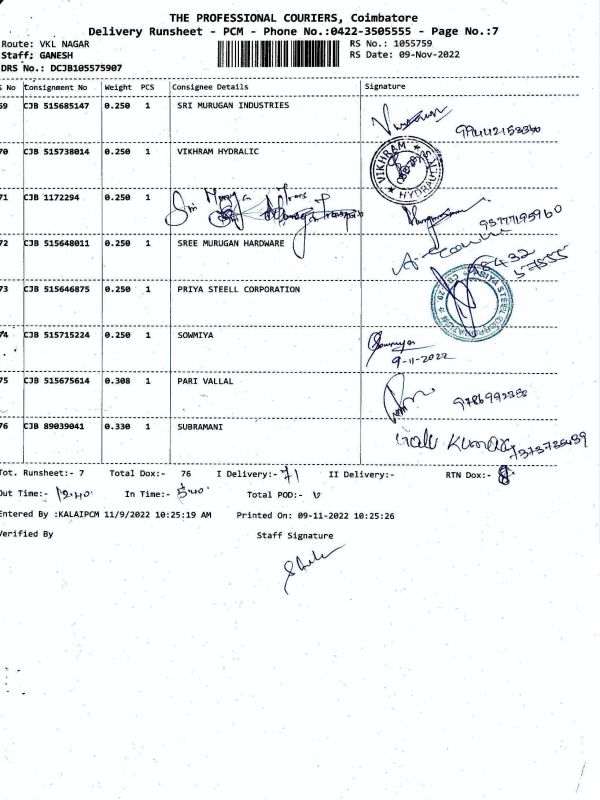 THE PROFESSIONAL COURIERS, Coimbatore
Delivery Runsheet - PCM - Phone No.:0422-3505555 - Page No.:7
Route: VKL NAGAR RS No.: 1055759
Staff: GANESH RS Date: 09-Nov-2022
DRS No.: DCJB105575907
S No Consignment No Weight PCS Consignee Details Signature
69 CJB 515685147 0.250 1 SRI MURUGAN INDUSTRIES
70 CJB 515738014 0.250 1 VIKHRAM HYDRALIC
VIKHRAM HYDRAULIC
71 CJB 1172294 0.250 1 Sri
72 CJB 515648011 0.250 1 SREE MURUGAN HARDWARE
98432
57555
73 CJB 515646875 0.250 1 PRIYA STEELL CORPORATION
74 CJB 515715224 0.250 1 SOWMIYA
9-11-2022
75 CJB 515675614 0.308 1 PARI VALLAL
76 CJB 89039041 0.330 1 SUBRAMANI
Kumar
Tot. Runsheet:- 7 Total Dox:- 76 I Delivery:- 71 II Delivery:- RTN Dox:-
Out Time:- 12.40 In Time:- 5.40 Total POD:-
Entered By :KALAIPCM 11/9/2022 10:25:19 AM Printed On: 09-11-2022 10:25:26
Verified By Staff Signature